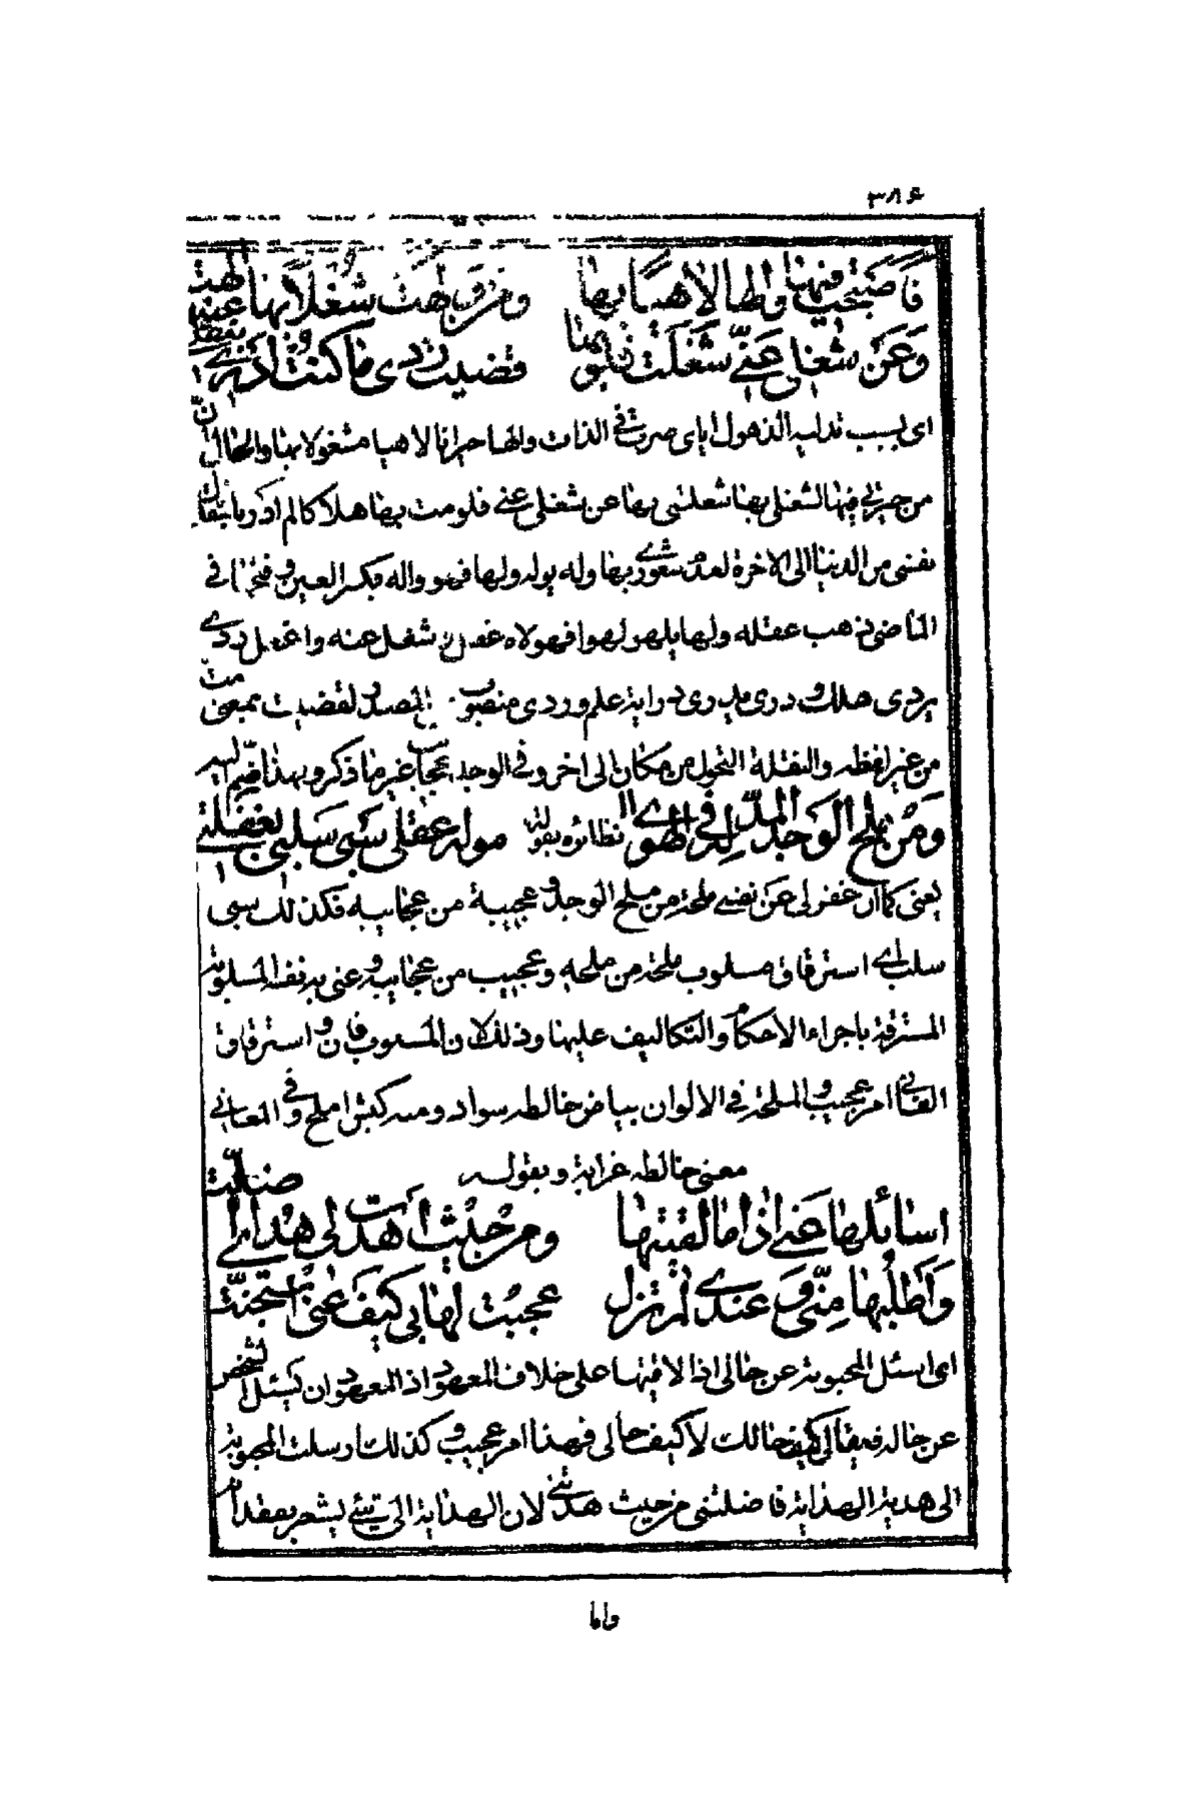 ٣٨۶
فَأصبحت فيها والها لاهيا بها ومن ولهت شغلا بها عنه الهت
وَعن شغلي عنّي شغلت فلو بها قضيت ردى ما كنت ادري بنقلتي
اى بسبب تدليه الذهول اياى صرت فى الذات والها حيرانا لاهيا مشغولا بها والحال ان
من حيرتي فيها لشغلى بها شغلتنى بها عن شغلى عنى فلو مت بها هلاكا لم ادر بانتقال
نفسى من الدنيا الى الاخرة لعدم شعورى بها وله يوله ولها فهو واله بكسر العين و فتحها فى
الماضى ذهب عقله ولها يلهو لهوا فهو لاه غفل شغل عنه وا ردى
يردى هلك و درى يدرى دراية علم وردى منصوب المصدر لقضيت بمعنى مت
من غير لفظه والنقلة التحول من مكان الى اخر و فى الوجد عجايب غير ما ذكر وبهذا ضم اليه
ومن ملح الوجد المدلّه في الهوى نظائره بقوله موله عقلي سبى سلب بغفلتي
يعنى كما ان غفولى عن نفسى ملحة من ملح الوجد و عجيبة من عجايبه فكذلك سبى
سلب اى استرقاق مسلوب ملحة من ملحه وعجيب من عجايبه و عنى به نفسه المسلوبة
المسترقة باجراء الاحكام والتكاليف عليها وذلك لان المسلوب فان و استرقاق
الفانى امر عجيب و الملحة في الالوان بياض خالطه سواد ومنه كبش املح و فى المعانى
معنى خالطه غرابة و بقوله
اسائلها عني اذا ما لقيتها ومن حيث اهدت لي هداي اضلت
وَأطلبها منّي و عندي لم تزل عجبت لها بي كيف عني استجنّت
اى اسئل المحبوبة عن حالى اذا لاقيتها على خلاف المعهود اذ المعهود ان يسئل الشخص
عن حاله فيقال كيف حالك لا كيف حالى فهذا امر عجيب و كذلك ارسلت المحبوبة
الى هدية الهداية فاضلتنى من حيث هدتنى لان الهداية الى شئ يشعر بفقدان
واما